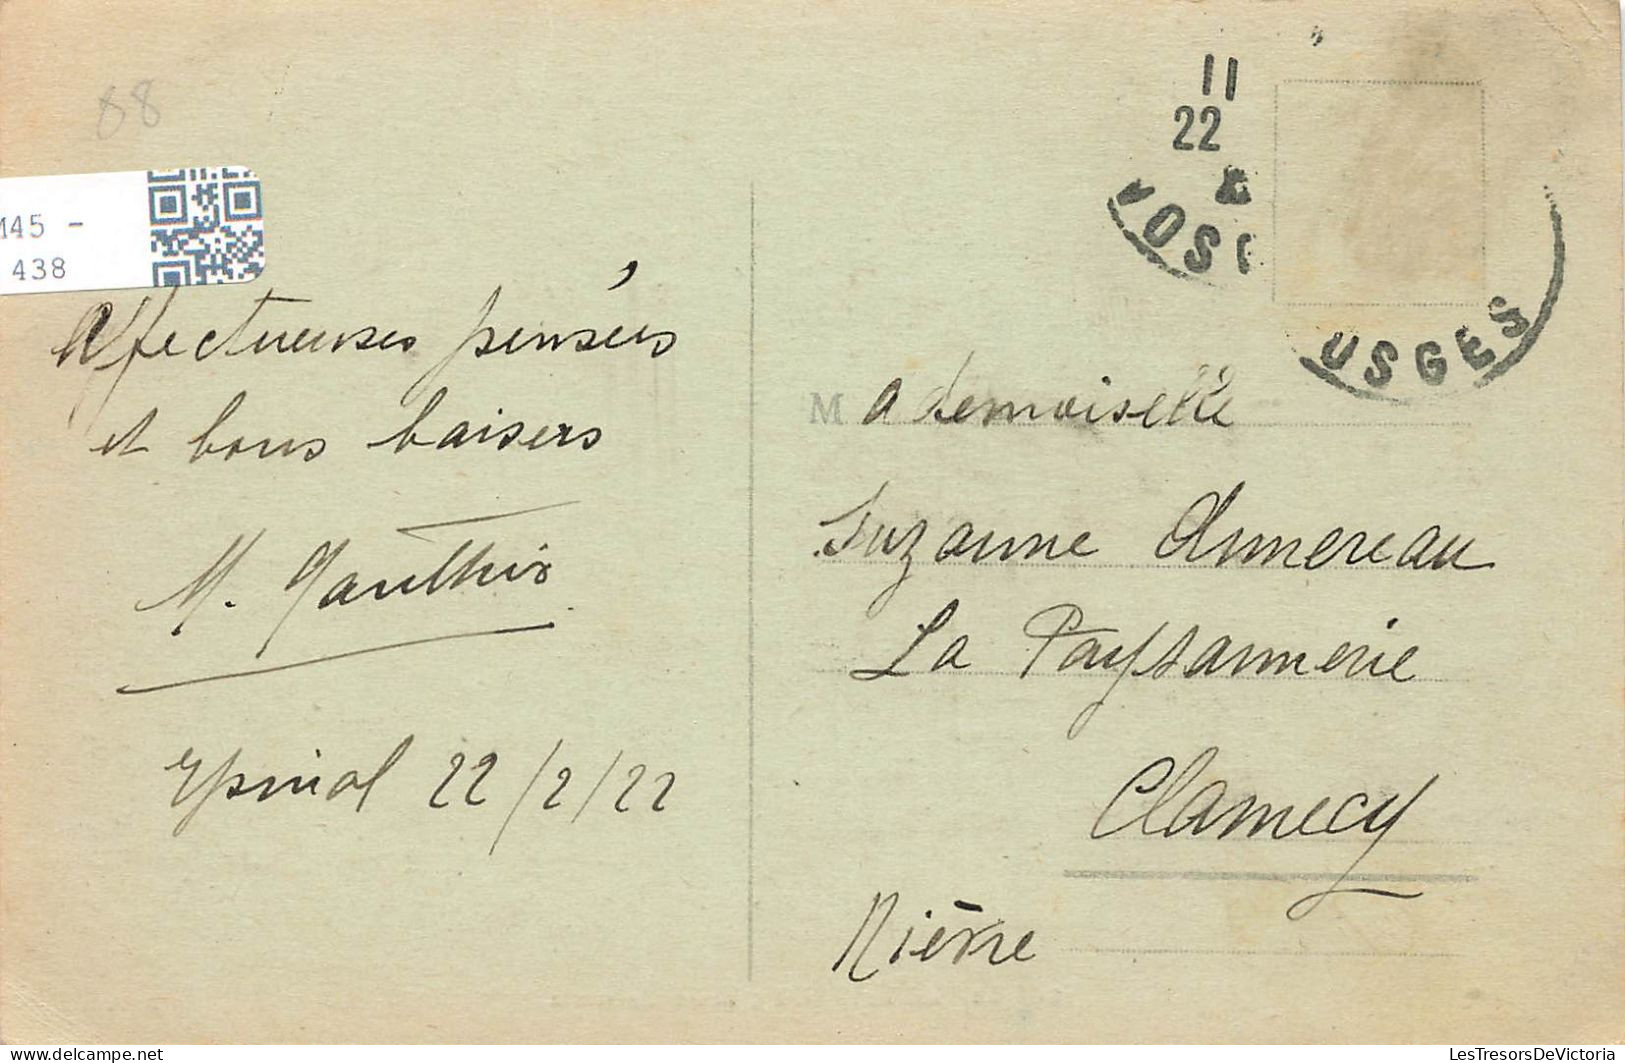 88
M45 -
438
11
22
VOSG
OSGES
Affectueuses pensées
et bons baisers
M. Gauthier
Epinal 22/2/22
Mademoiselle
Suzanne Annereau
La Paysannerie
Clamecy
Nièvre
LesTresorsDeVictoria
delcampe.net